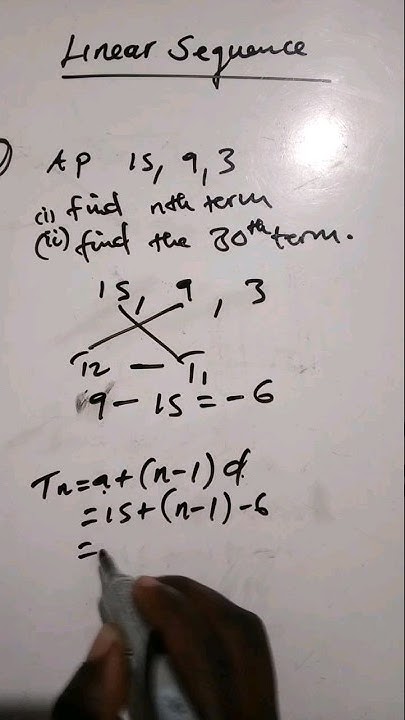 Linear Sequence
AP 15, 9, 3
(i) find nth term
(ii) find the 30th term.
15, 9, 3
T2 - T1
9 - 15 = -6
Tn = a + (n-1) d
= 15 + (n-1) -6
=